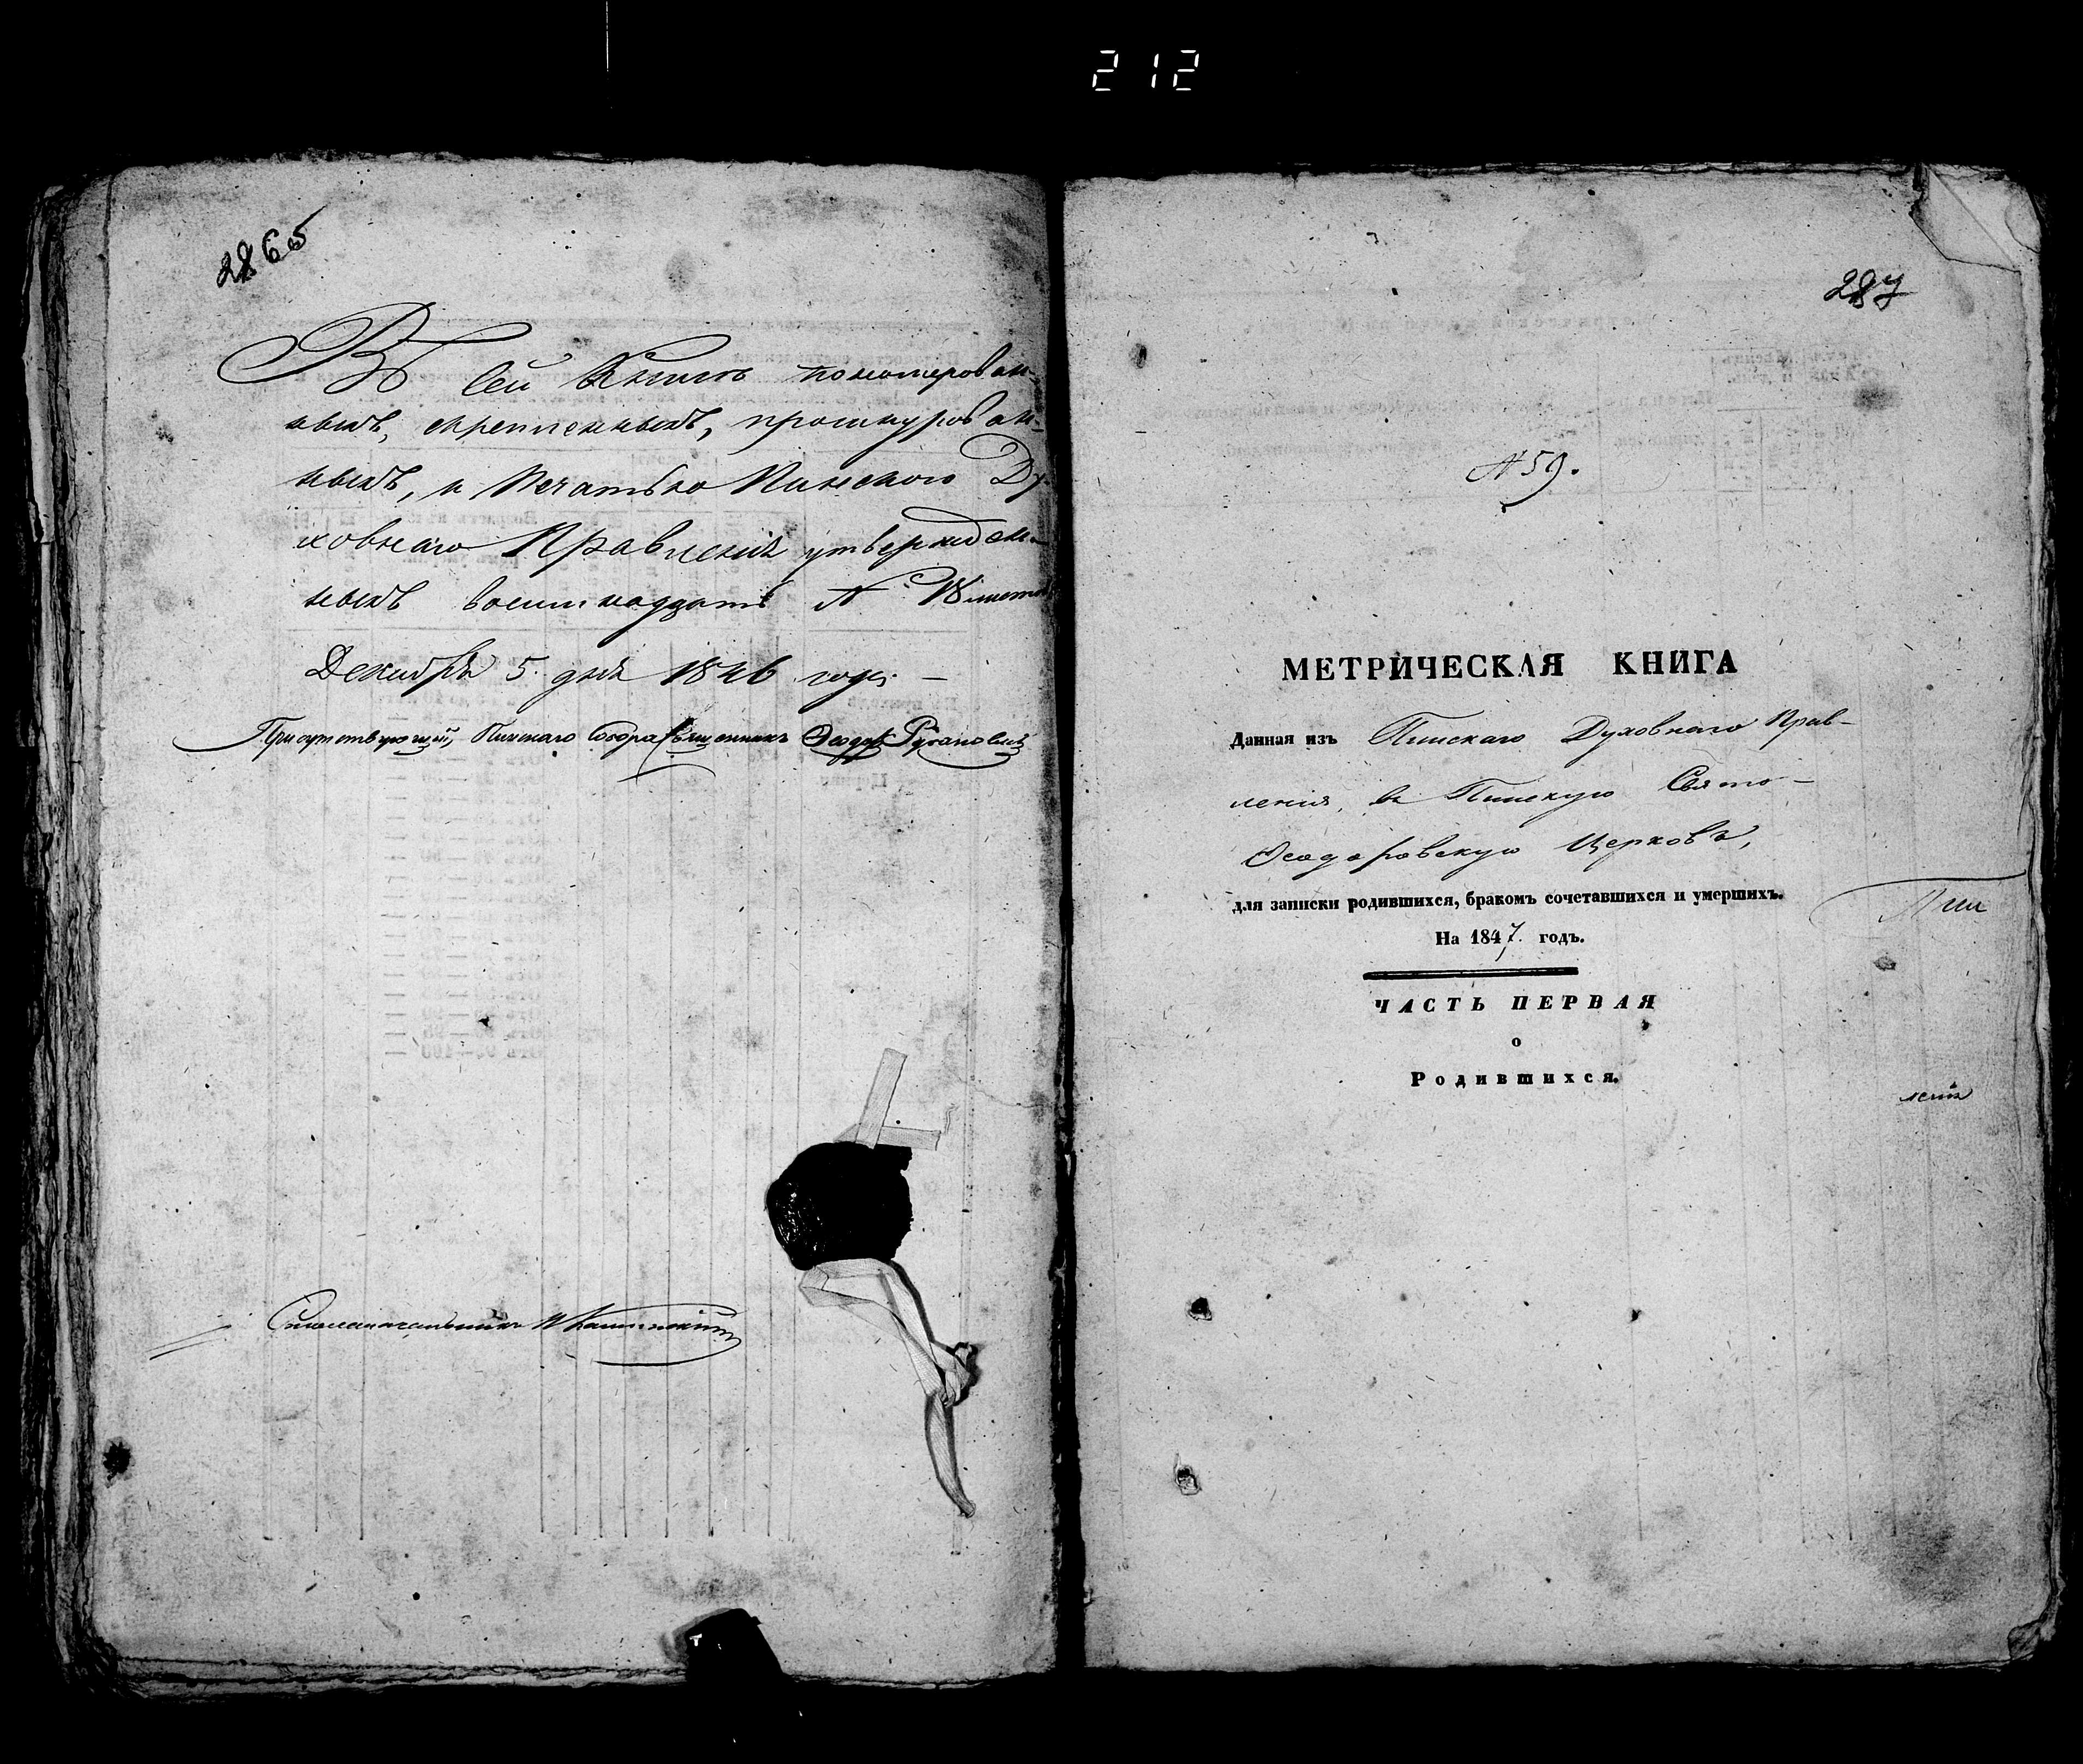 212
286об
Въ сей Книгѣ пономерован-
ныхъ, скрепленныхъ, прошнурован-
ныхъ, и Печатью Пинскаго Ду
ховнаго Правленія утвержден-
ныхъ восемнадцать № 18 листовъ
Декабря 5. дня 1846 года. —
Присутствующій, Пинскаго Собора Священникъ Ѳеодоръ
Столоначальникъ
287
№ 59.
МЕТРИЧЕСКАЯ КНИГА
Данная изъ Пинскаго Духовнаго Прав-
ленія, въ Пинскую Свято-
Ѳеодоровскую Церковь,
для записки родившихся, бракомъ сочетавшихся и умершихъ.
На 1847. годъ.
ЧАСТЬ ПЕРВАЯ
о
Родившихся.
ленія